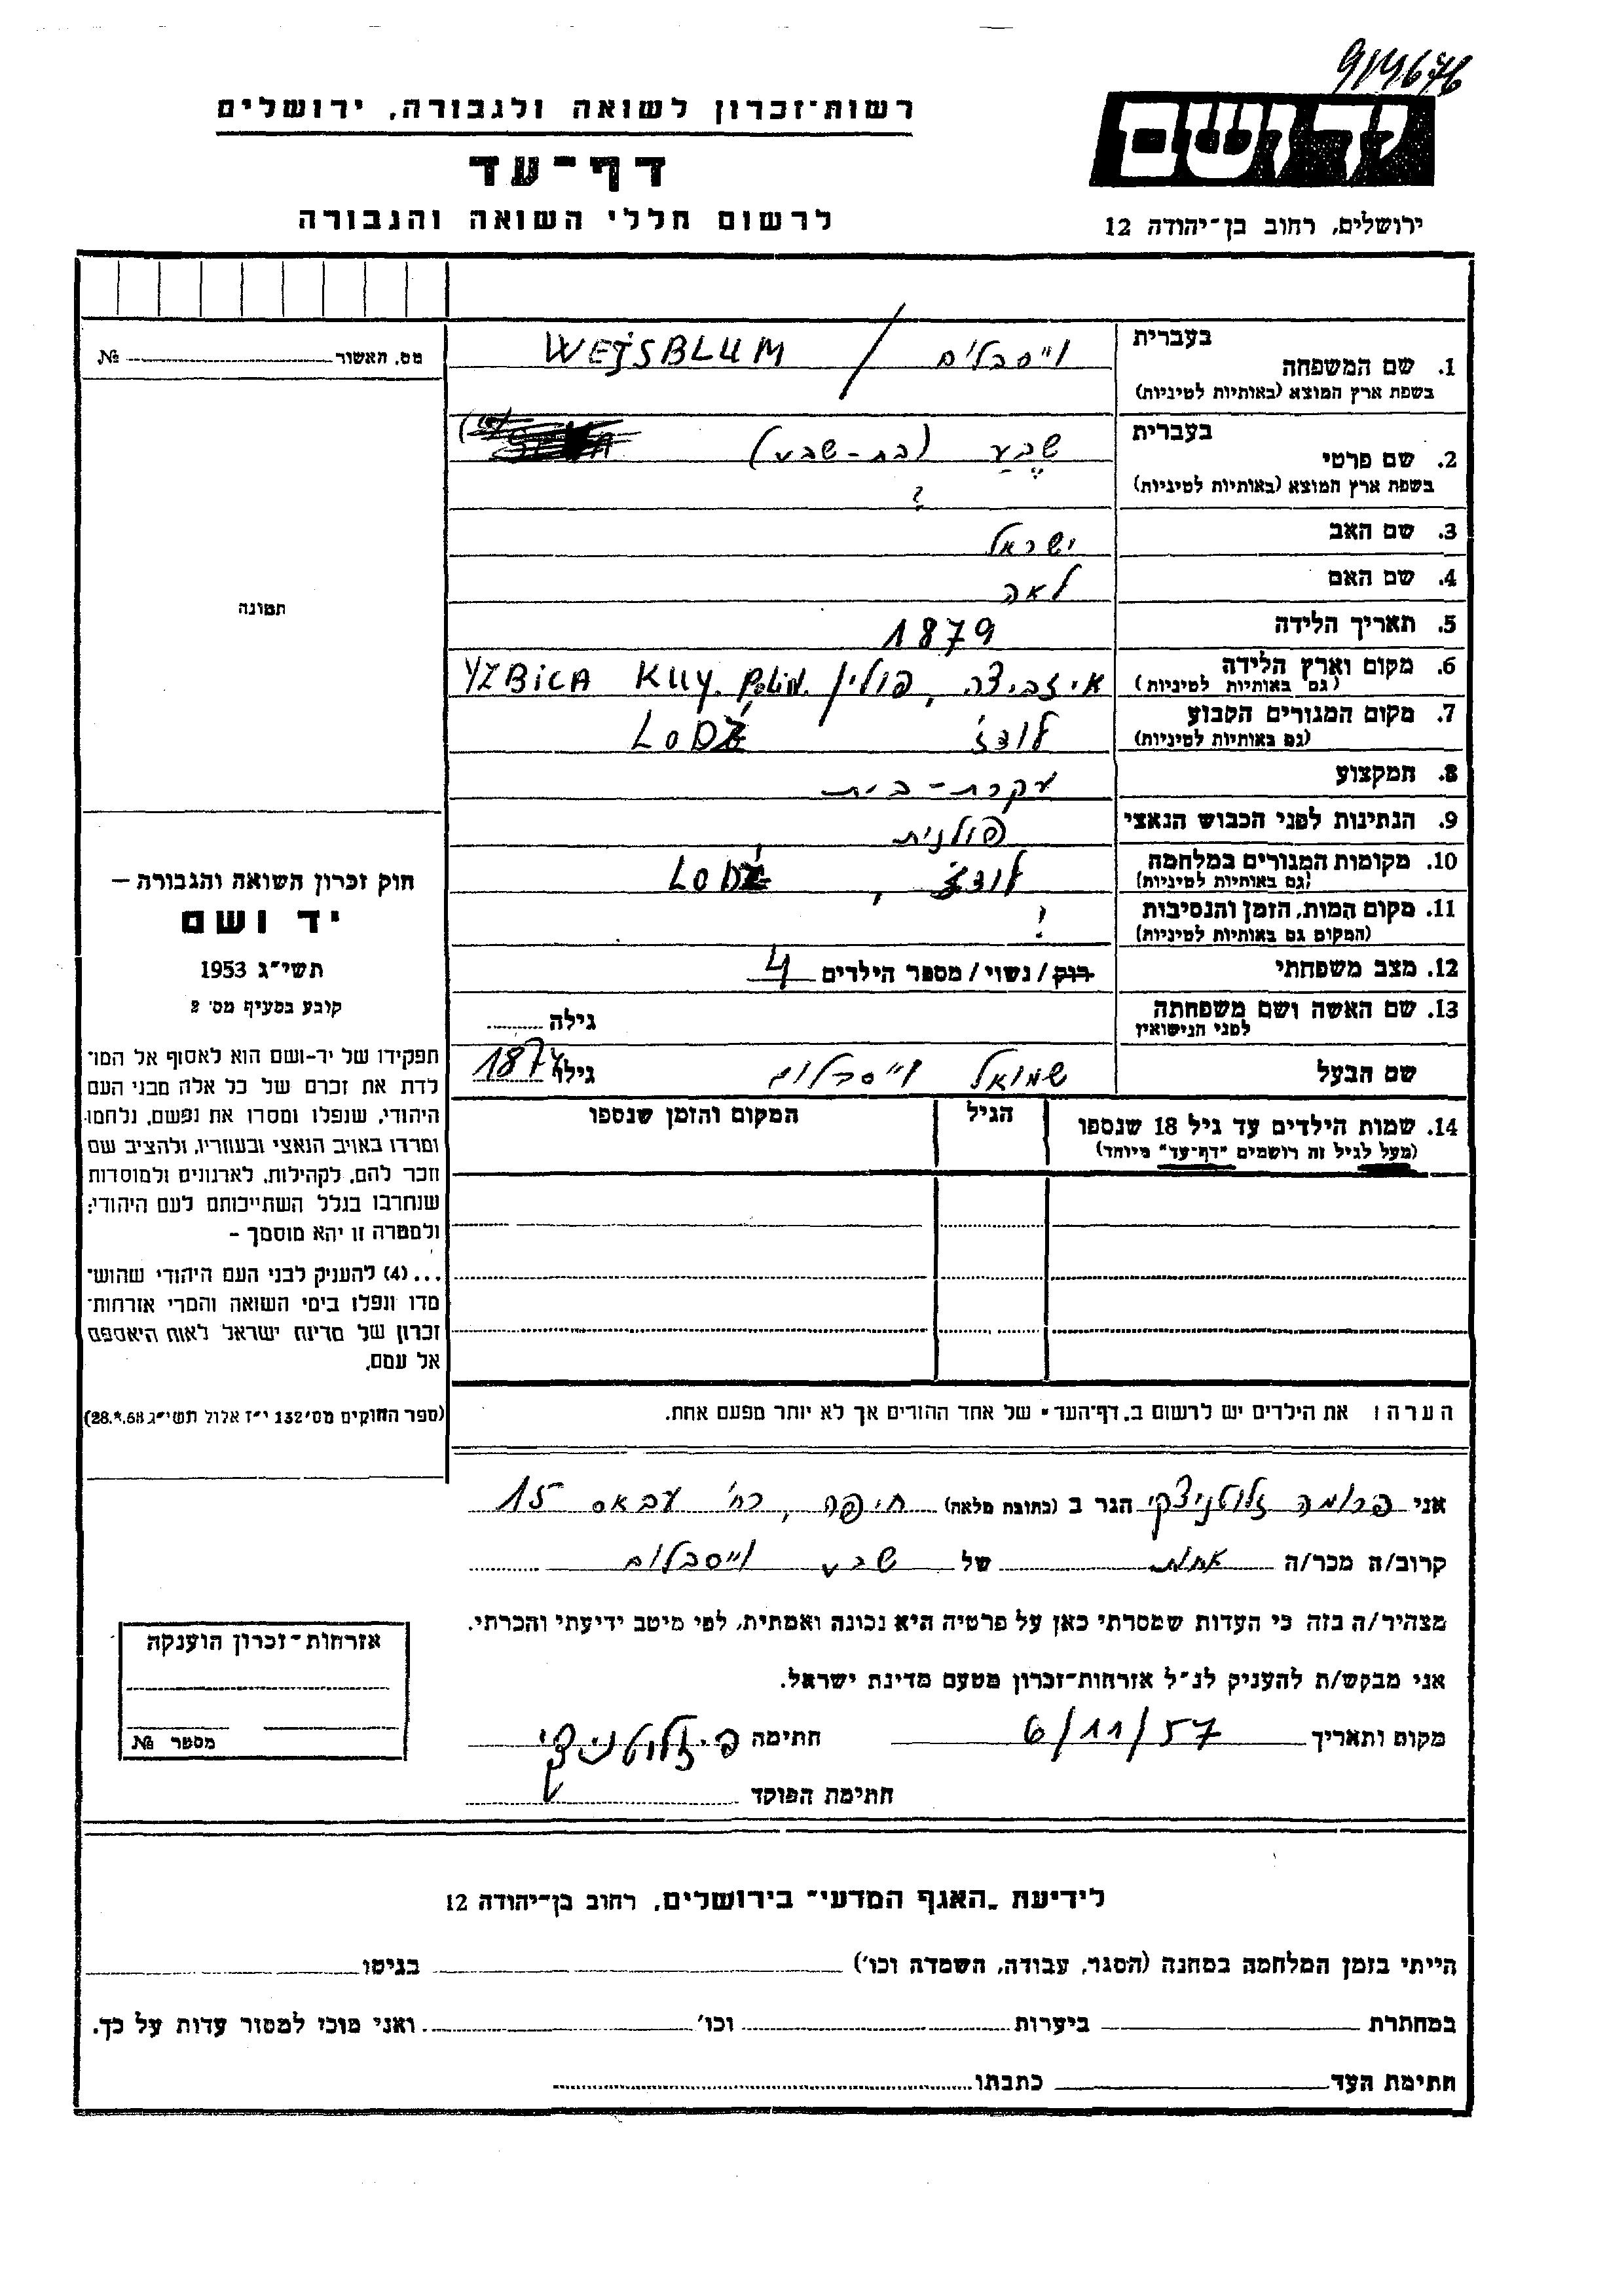 914676
רשות-זכרון לשואה ולגבורה, ירושלים
יד ושם
דף-עד
לרשום חללי השואה והגבורה
ירושלים, רחוב בן-יהודה 12
מס. האשור № 
בעברית
1. שם המשפחה וייסבלום / WEJSBLUM
בשפת ארץ המוצא (באותיות לטיניות)
בעברית
2. שם פרטי שבע (בת-שבע)
בשפת ארץ המוצא (באותיות לטיניות) ?
3. שם האב ישראל
4. שם האם לאה
5. תאריך הלידה 1879
6. מקום וארץ הלידה איזביצה, פולין / YZBiCA KUY. Polin.
(גם באותיות לטיניות)
7. מקום המגורים הקבוע לודז' LODŹ
(גם באותיות לטיניות)
8. המקצוע עקרת-בית
9. הנתינות לפני הכבוש הנאצי פולנית
10. מקומות המגורים במלחמה לודז', LODŹ
(גם באותיות לטיניות)
11. מקום המות, הזמן והנסיבות ?
(המקום גם באותיות לטיניות)
12. מצב משפחתי רוק / נשוי / מספר הילדים 4
13. שם האשה ושם משפחתה גילה
לפני הנישואין
שם הבעל שמואל וייסבלום גילו 1874
14. שמות הילדים עד גיל 18 שנספו הגיל המקום והזמן שנספו
(מעל לגיל זה רושמים "דף-עד" מיוחד)
תמונה
חוק זכרון השואה והגבורה –
יד ושם
תשי"ג 1953
קובע בסעיף מס' 2
תפקידו של יד-ושם הוא לאסוף אל המו־
לדת את זכרם של כל אלה מבני העם
היהודי, שנפלו ומסרו את נפשם, נלחמו
ומרדו באויב הנאצי ובעוזריו, ולהציב שם
וזכר להם, לקהילות, לארגונים ולמוסדות
שנחרבו בגלל השתייכותם לעם היהודי;
ולמטרה זו יהא מוסמך –
... (4) להעניק לבני העם היהודי שהוש־
מדו ונפלו בימי השואה והמרי אזרחות־
זכרון של מדינת ישראל לאות היאספם
אל עמם.
(ספר החוקים מס' 132 י"ז אלול תשי"ג
הערה: את הילדים יש לרשום ב"דף-העד" של אחד ההורים אך לא יותר מפעם אחת.
אני פרומה זלוטניצקי הגר ב (כתובת מלאה) חיפה, רח' עבאס 15
קרוב/ה מכר/ה אחות של שבע וייסבלום
מצהיר/ה בזה כי העדות שמסרתי כאן על פרטיה היא נכונה ואמתית, לפי מיטב ידיעתי והכרתי.
אני מבקש/ת להעניק לנ"ל אזרחות-זכרון מטעם מדינת ישראל.
מקום ותאריך 6/11/57 חתימה פ. זלוטניצקי
חתימת הפוקד
אזרחות-זכרון הוענקה
מספר №
לידיעת "האגף המדעי" בירושלים, רחוב בן-יהודה 12
הייתי בזמן המלחמה במחנה (הסגר, עבודה, השמדה וכו') בגיטו
במחתרת ביערות וכו' ואני מוכן למסור עדות על כך.
חתימת העד כתבתו